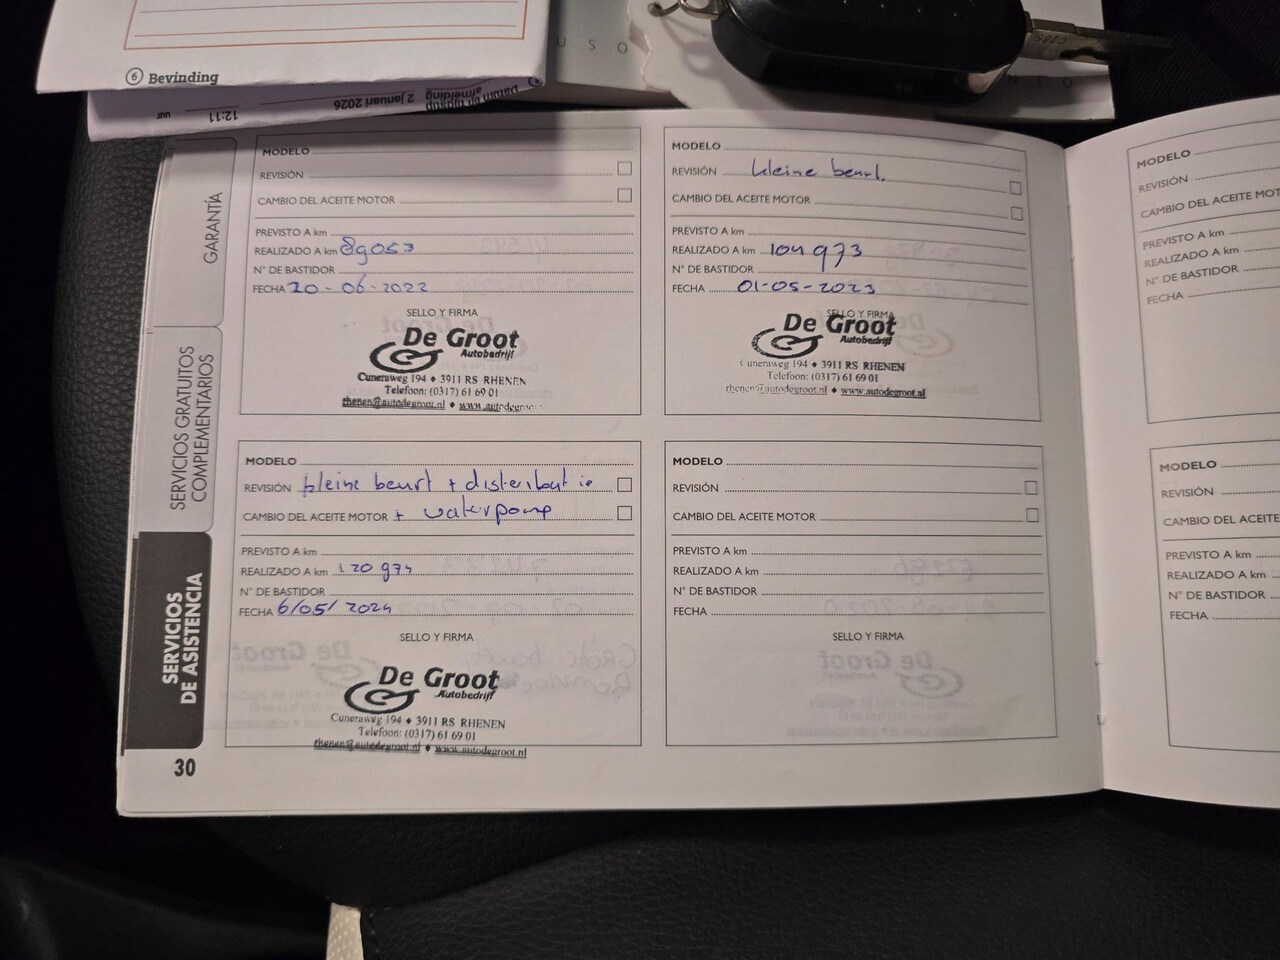 6 Bevinding
Datum en tijdstip
afmelding
2 januari 2026
12:11
uur
USO
GARANTÍA
SERVICIOS GRATUITOS
COMPLEMENTARIOS
SERVICIOS
DE ASISTENCIA
30
MODELO
REVISIÓN
CAMBIO DEL ACEITE MOTOR
PREVISTO A km
REALIZADO A km 89053
N° DE BASTIDOR
FECHA 20-06-2022
SELLO Y FIRMA
De Groot
Autobedrijf
Cuneraweg 194 ♦ 3911 RS RHENEN
Telefoon: (0317) 61 69 01
rhenen@autodegroot.nl ♦ www.autodegroot
MODELO
REVISIÓN kleine beurt.
CAMBIO DEL ACEITE MOTOR
PREVISTO A km
REALIZADO A km 104973
N° DE BASTIDOR
FECHA 01-05-2023
SELLO Y FIRMA
De Groot
Autobedrijf
Cuneraweg 194 ♦ 3911 RS RHENEN
Telefoon: (0317) 61 69 01
rhenen@autodegroot.nl ♦ www.autodegroot.nl
MODELO
REVISIÓN kleine beurt + distributie
CAMBIO DEL ACEITE MOTOR + waterpomp
PREVISTO A km
REALIZADO A km 120974
N° DE BASTIDOR
FECHA 6/05/2024
SELLO Y FIRMA
De Groot
Autobedrijf
Cuneraweg 194 ♦ 3911 RS RHENEN
Telefoon: (0317) 61 69 01
rhenen@autodegroot.nl ♦ www.autodegroot.nl
MODELO
REVISIÓN
CAMBIO DEL ACEITE MOTOR
PREVISTO A km
REALIZADO A km
N° DE BASTIDOR
FECHA
SELLO Y FIRMA
MODELO
REVISIÓN
CAMBIO DEL ACEITE MOT
PREVISTO A km
REALIZADO A km
N° DE BASTIDOR
FECHA
MODELO
REVISIÓN
CAMBIO DEL ACEITE
PREVISTO A km
REALIZADO A km
N° DE BASTIDOR
FECHA